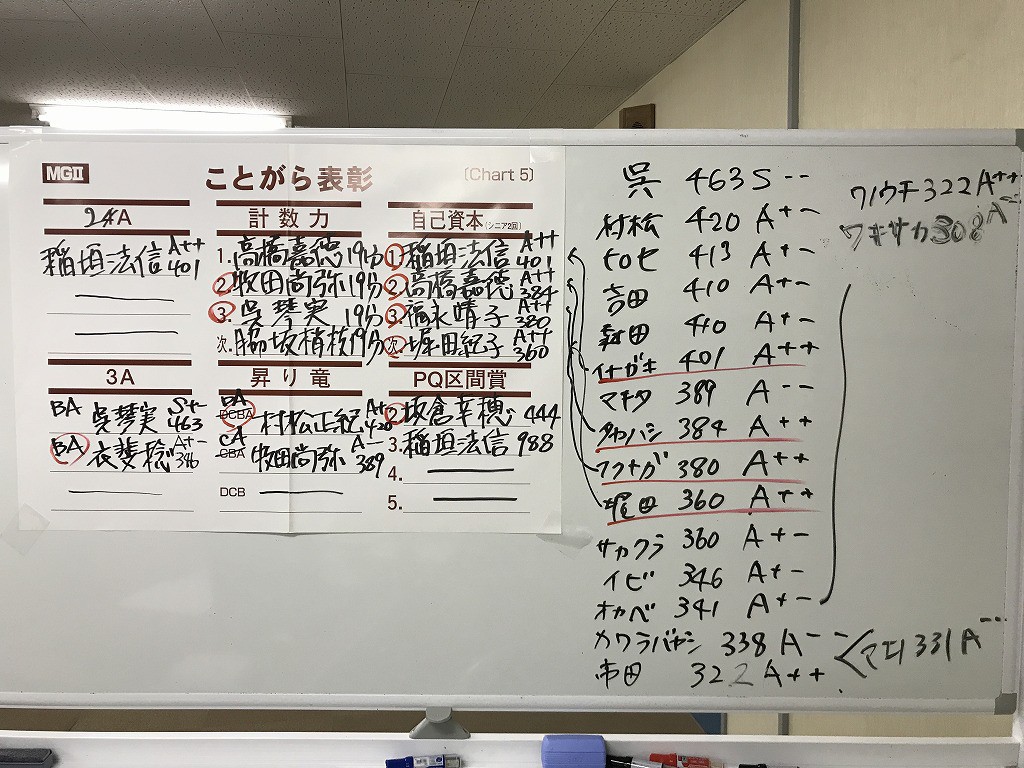 MGⅡ
ことがら表彰
〔Chart 5〕
2A
稲垣法信 A++ 401
計数力
1. 高橋嘉徳 19分
2 牧田尚弥 19分
3. 呉琴実 19分
次. 脇坂 19分
自己資本(シニア2回)
1 稲垣法信 A++ 401
2 高橋嘉徳 A++ 384
3 福永晴子 A++ 380
次 堀田紀子 A++ 360
3A
BA 呉琴実 S+- 463
BA 衣斐稔 A+- 346
昇り竜
BA DCBA 村松正紀 A+ 420
CA CBA 牧田尚弥 A-- 389
DCB
PQ区間賞
2 坂倉幸穂 444
3. 稲垣法信 988
4.
5.
呉 463 S--
村松 420 A+-
ヒロセ 413 A+-
吉田 410 A+-
森田 410 A+-
イナガキ 401 A++
マキタ 389 A--
タカハシ 384 A++
フクナガ 380 A++
堀田 360 A++
サカクラ 360 A+-
イビ 346 A+-
オカベ 341 A+-
カワラバヤシ 338 A--
マエ 331 A--
市田 322 A++
322 A++
ワキサカ 308 A--